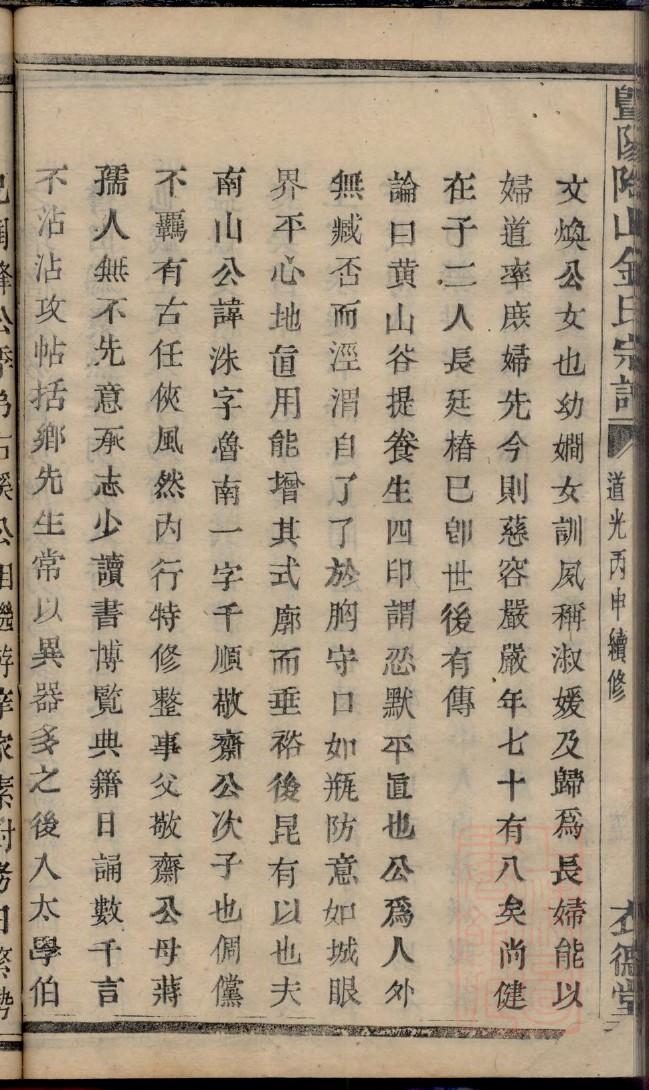 暨陽陶山金氏宗譜 道光丙申續修
文煥公女也幼嫺女訓夙稱淑媛及歸爲長婦能以
婦道率庶婦先今則慈容嚴嚴年七十有八矣尚健
在子二人長廷椿已卽世後有傳
論曰黄山谷提養生四印謂忍默平直也公爲人外
無臧否而涇渭自了了於胸守口如瓶防意如城眼
界平心地直用能增其式廓而垂裕後昆有以也夫
南山公諱洙字魯南一字千順敬齋公次子也倜儻
不羈有古任俠風然内行特修整事父敬齋公母蔣
孺人無不先意承志少讀書博覽典籍日誦數千言
不沾沾攻帖括鄉先生常以異器多之後入太學伯